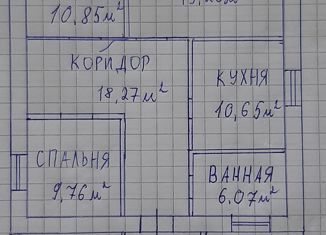 10,85 м²
КОРИДОР
18,27 м²
КУХНЯ
10,65 м²
СПАЛЬНЯ
9,76 м²
ВАННАЯ
6.07 м²